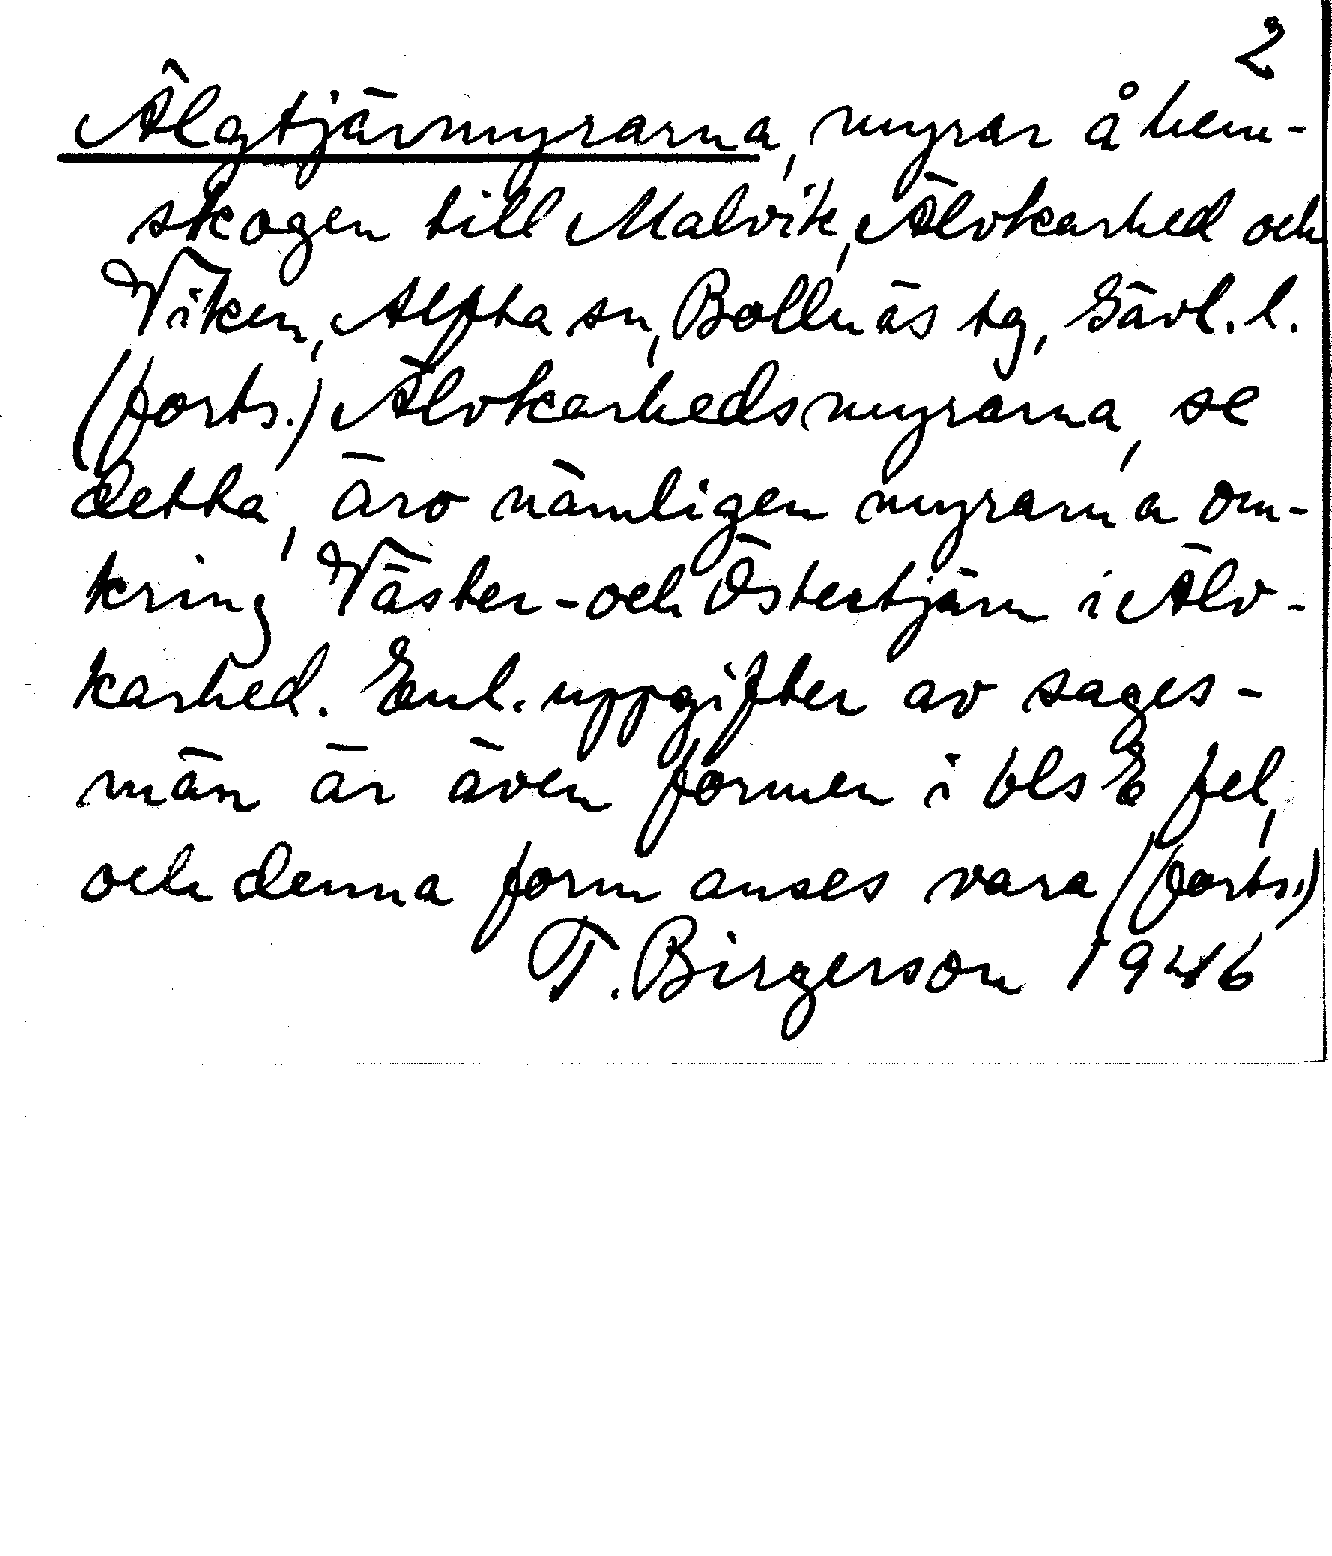 2
Älgtjärnmyrarna, myrar å hem-
skogen till Malvik, Älvkarhed och
Viken, Alfta sn, Bollnäs tg, Gävl. l.
(forts.) Älvkarhedsmyrarna, se
detta, äro nämligen myrarna om-
kring Väster- och Östertjärn i Älv-
karhed. Enl. uppgifter av sages-
män är även formen i bls E fel,
och denna form anses vara (forts.)
T. Birgerson 1946